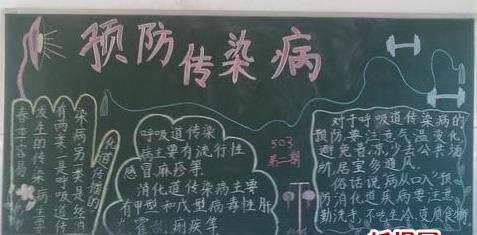 预防传染病
春季容易
发生的传染病主
有两类一是呼吸道传
染病另一类是经消
化道传播的
呼吸道传染
病主要有流行性
感冒麻疹等
消化道传染病主要
有甲型和戊型病毒性肝
霍乱、痢疾等
503
第二期
对于呼吸道传染病的
预防要注意气温变化
避免着凉,少去公共场
所,居室多通风
俗话说病从口入预
防消化道疾病要注意
勤洗手,不吃生冷变质食物